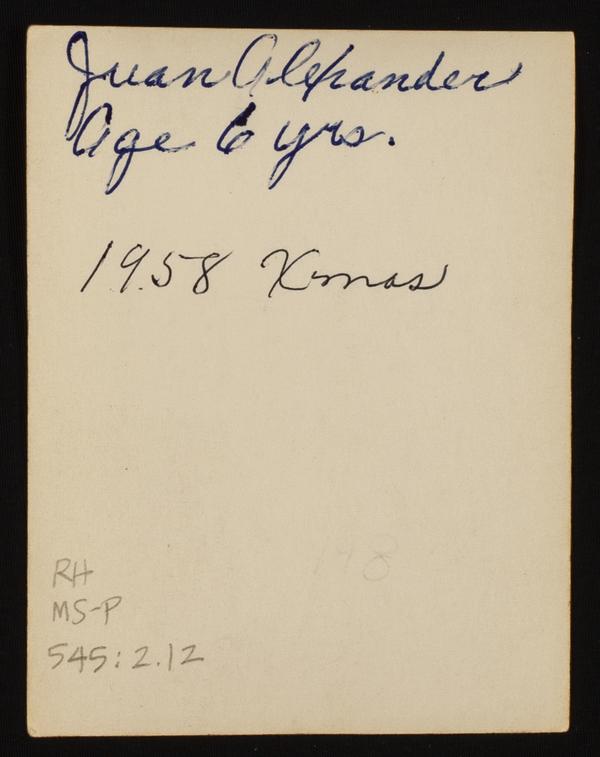 Juan Alexander
Age 6 yrs.
1958 Xmas
RH
MS-P
545:2.12